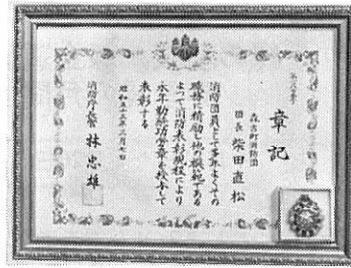 章記
森吉町消防団
団長 柴田直松
消防団員として多年よくその
職務に精励し他の模範である
よって消防表彰規程により
永年勤続功労章を授与して
表彰する
昭和五十三年三月七日
消防庁長官 林忠雄